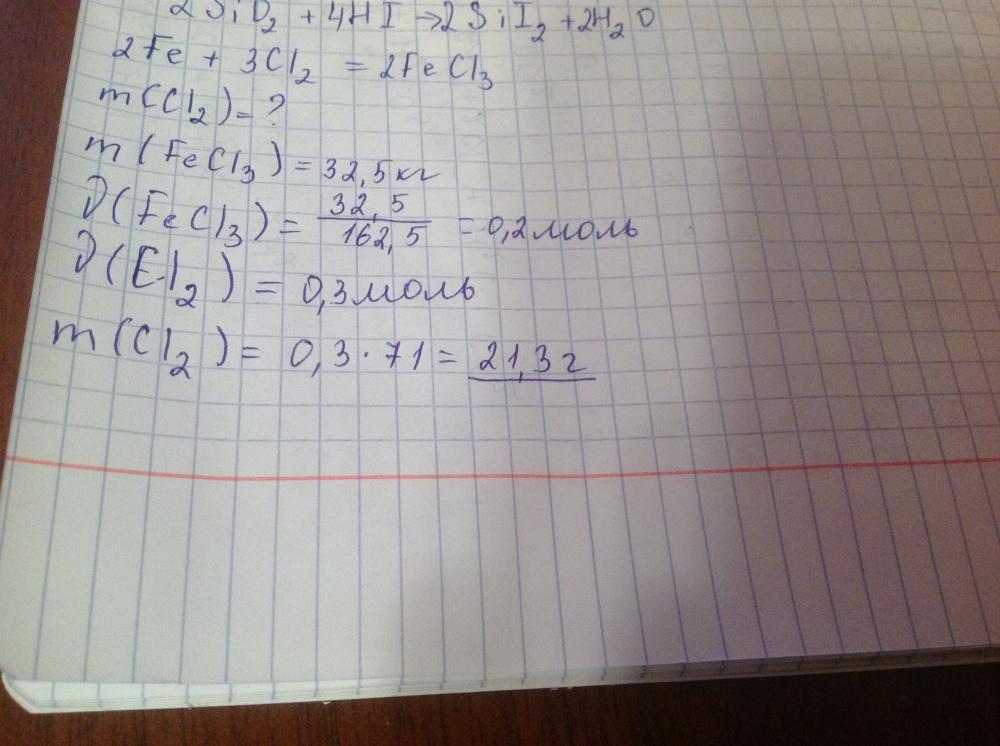 2SiO₂ + 4HI → 2SiI₂ + 2H₂O
2Fe + 3Cl₂ = 2FeCl₃
m(Cl₂) = ?
m(FeCl₃) = 32,5 кг
ν(FeCl₃) = 32,5 / 162,5 = 0,2 моль
ν(Cl₂) = 0,3 моль
m(Cl₂) = 0,3 · 71 = 21,3 г